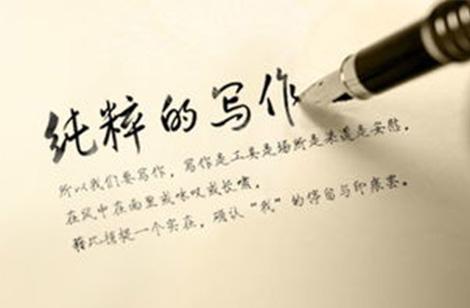 纯粹的写作
所以我们要写作，写作是工具是场所是渠道是安慰。
在风中在雨里或咏叹或长啸。
藉此捕捉一个实在，确认“我”的停留与印痕